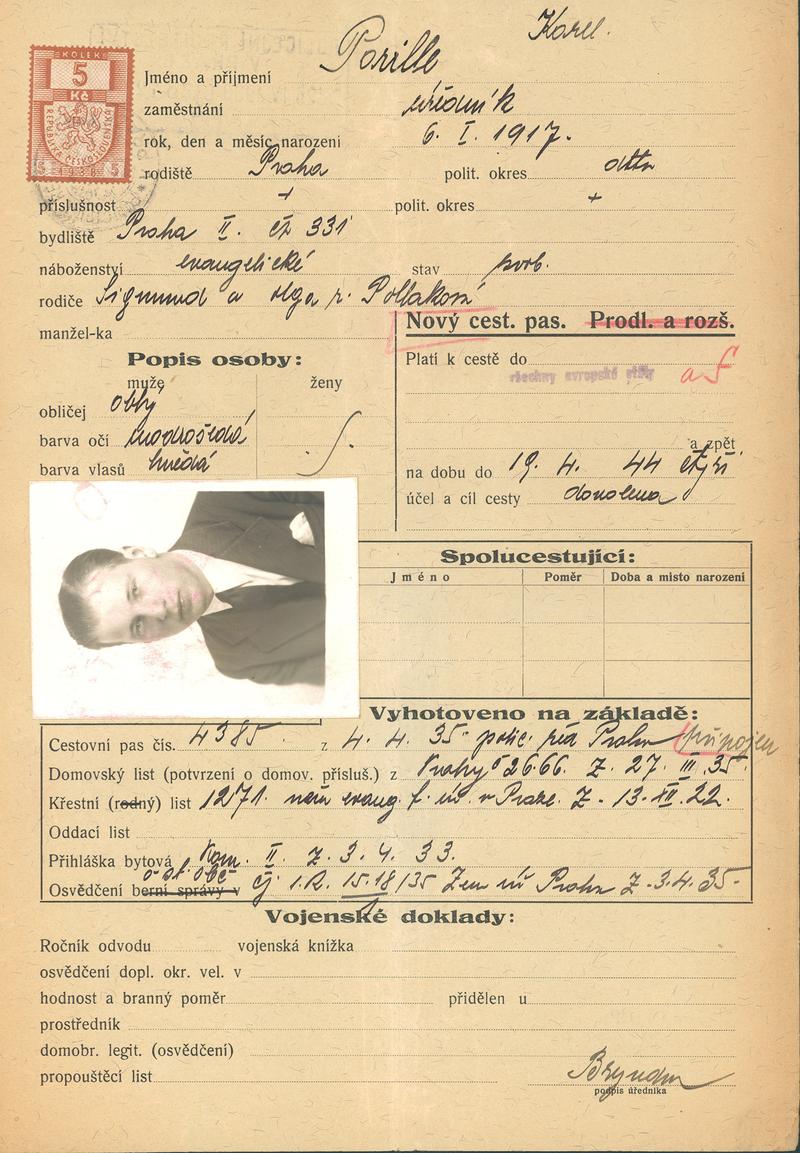 KOLEK
5
Kč
REPUBLIKA ČESKOSLOVENSKÁ
5 1938 5
Karel.
Jméno a příjmení Porille
zaměstnání úředník
rok, den a měsíc narození 6. I. 1917.
rodiště Praha polit. okres dtto
příslušnost + polit. okres +
bydliště Praha II. čp 331
náboženství evangelické stav svob.
rodiče Sigmund a Olga r. Pollaková
manžel-ka
Nový cest. pas. Prodl. a rozš.
Popis osoby:
muže ženy
Platí k cestě do
všechny evropské státy
obličej oblý
barva očí modrošedá
a zpět
barva vlasů hnědá
na dobu do 19. 4. 44 čtyři
účel a cíl cesty dovolená
Spolucestující:
Jméno Poměr Doba a místo narození
Vyhotoveno na základě:
Cestovní pas čís. 4385 z 4. 4. 35 polic. řed Praha připojen
Domovský list (potvrzení o domov. přísluš.) z Prahy 2666. z. 27. III. 35.
Křestní (rodný) list 1271. evang. f. ú. v Praze. z. 13. XII. 22.
Oddací list
Přihláška bytová kom. II. z. 3. 4. 33.
o st. obč
Osvědčení berní správy v čj 1.R. 15.18/35 Zem úř Praha z. 3.4.35.
Vojenské doklady:
Ročník odvodu vojenská knížka
osvědčení dopl. okr. vel. v
hodnost a branný poměr přidělen u
prostředník
domobr. legit. (osvědčení)
propouštěcí list
podpis úředníka